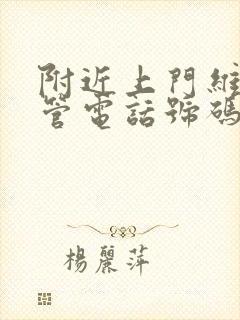 附近上門維
管電話號碼
楊麗萍